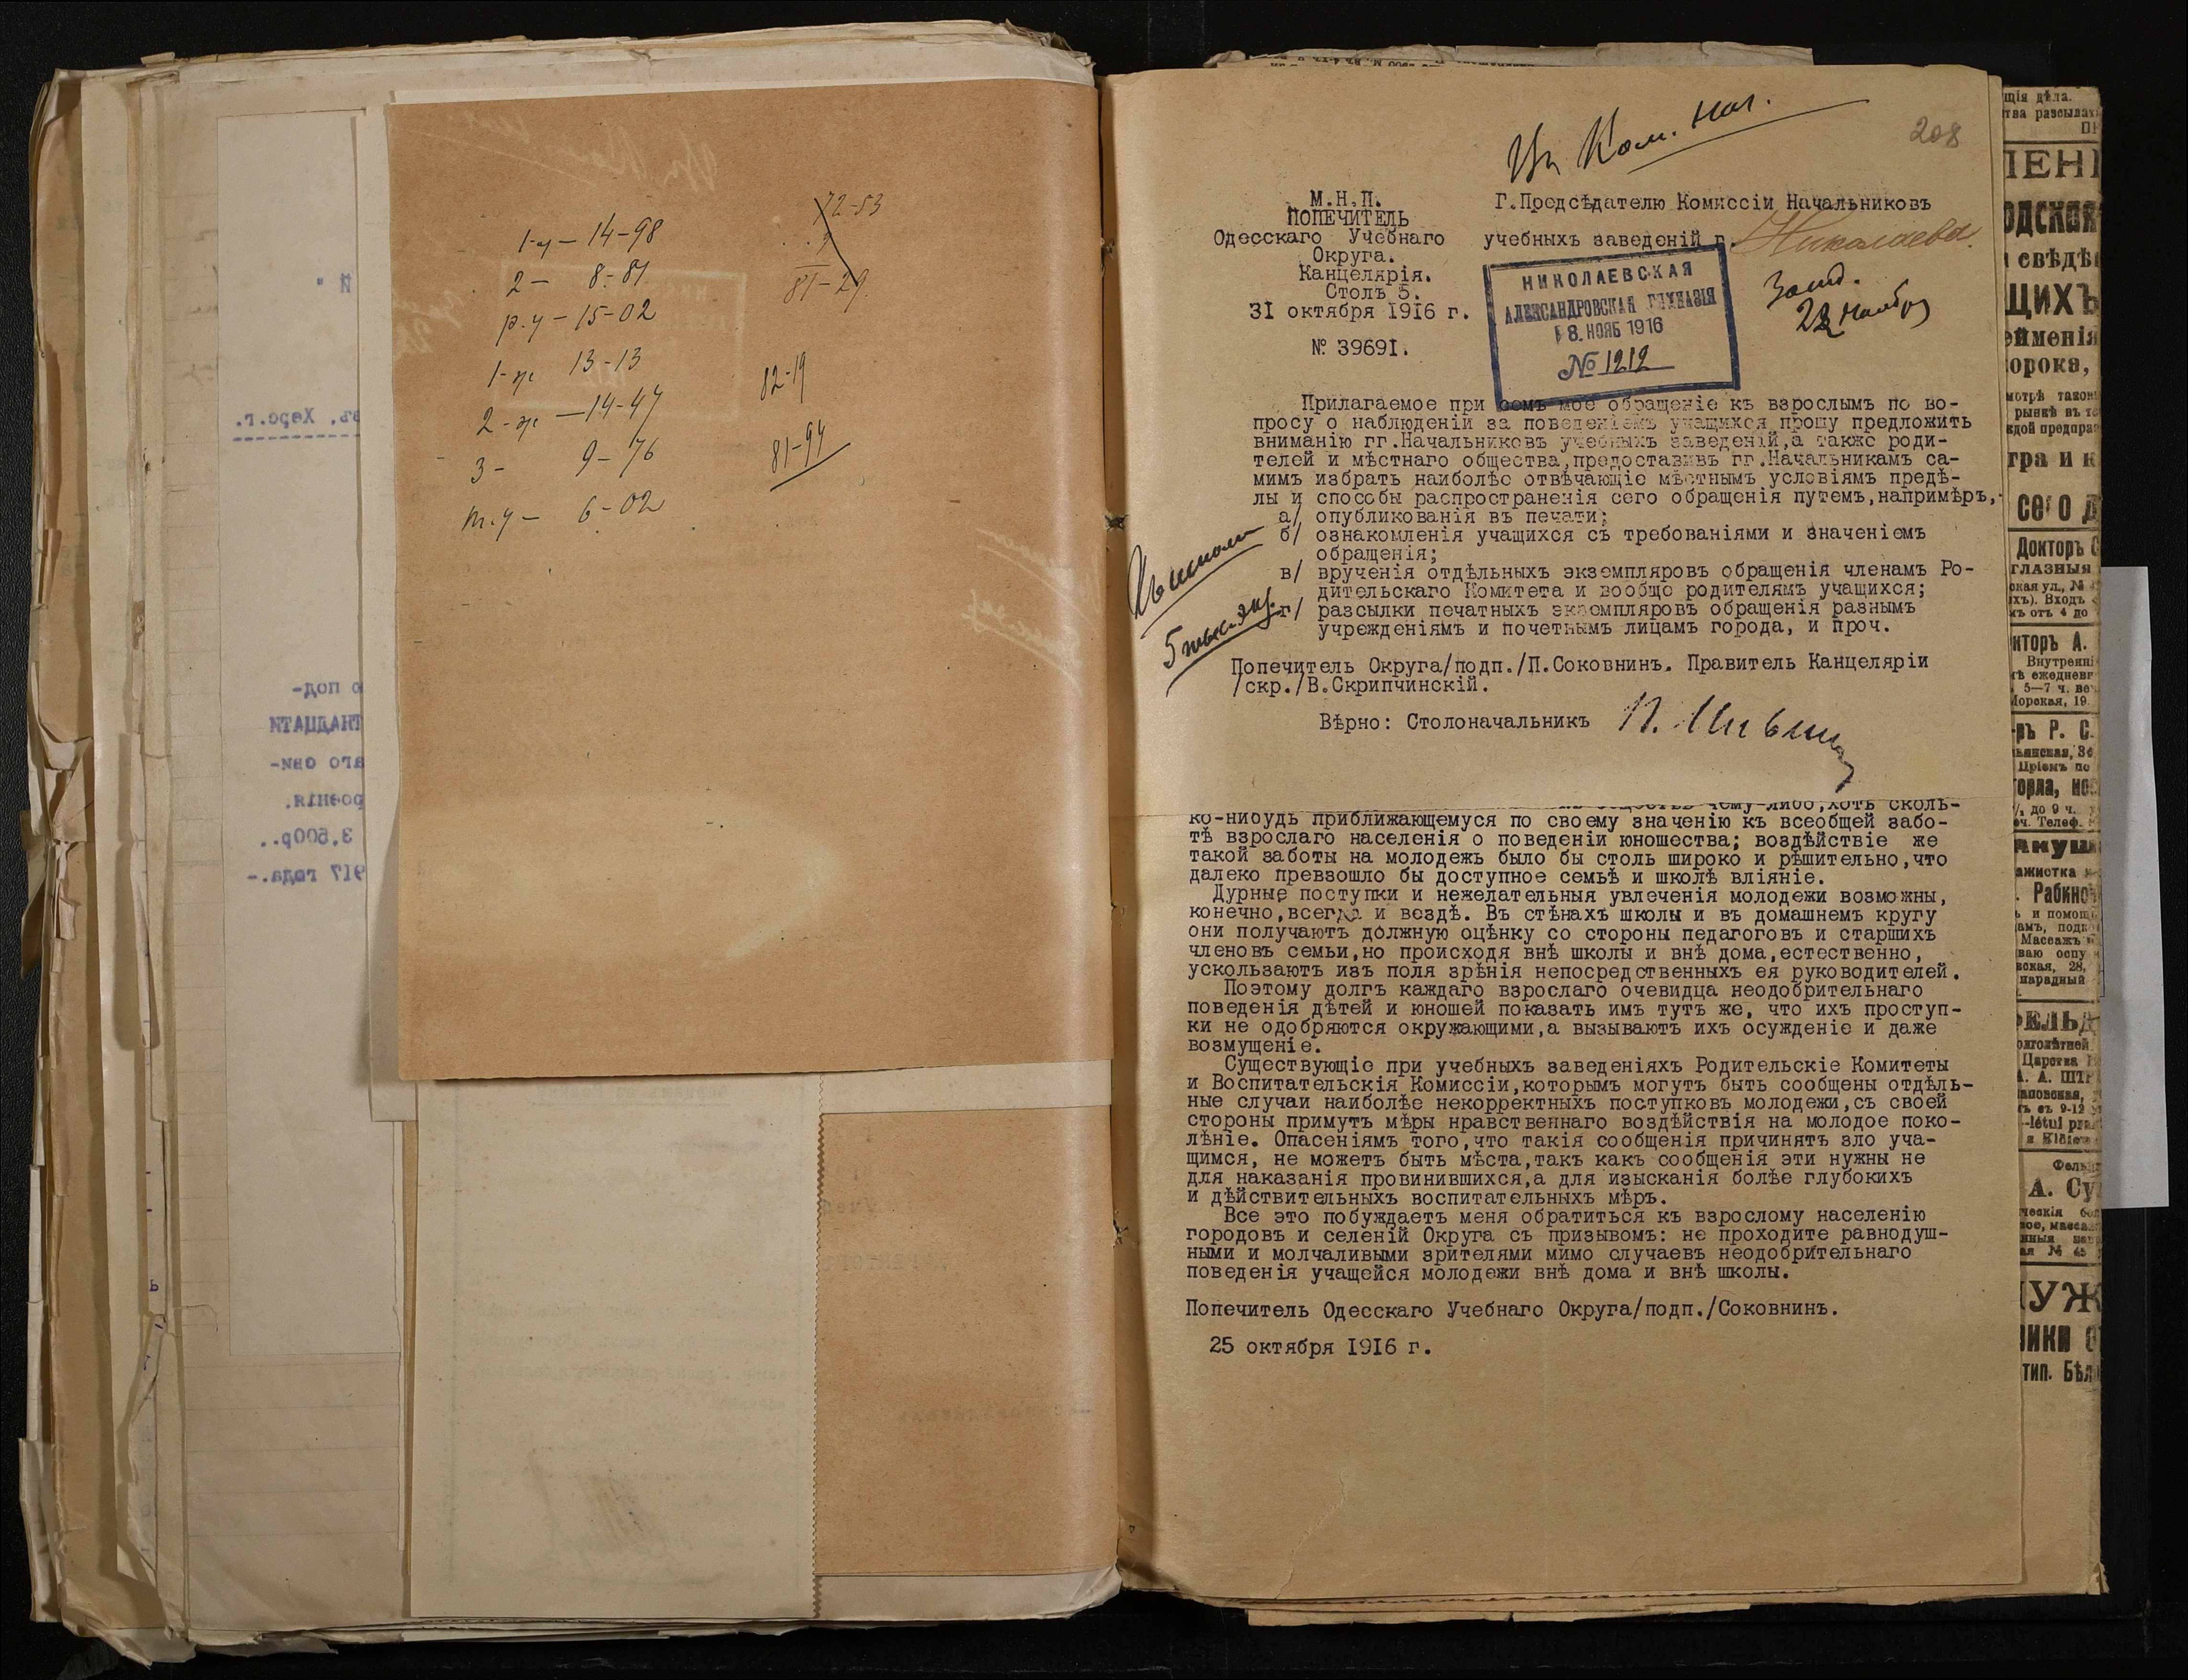 1-ч — 14-98
2 — 8-81
р.у — 15-02
1-ж 13-13
2-ж — 14-47
3 - 9-76
т.у — 6-02
72-53
81-29
82-19
81-94
Въ Ком. Нач.
208
М.Н.П.
ПОПЕЧИТЕЛЬ
Одесскаго Учебнаго
Округа.
Канцелярія.
Столъ 5.
31 октября 1916 г.
№ 39691.
Г.Предсѣдателю Комиссіи Начальниковъ
учебныхъ заведеній г. Николаева.
НИКОЛАЕВСКАЯ
АЛЕКСАНДРОВСКАЯ ГИМНАЗІЯ
8. НОЯБ 1916
№ 1212
Засѣд.
22 ноября
Прилагаемое при семъ мое обращеніе къ взрослымъ по во-
просу о наблюденіи за поведеніемъ учащихся прошу предложить
вниманію гг.Начальниковъ учебныхъ заведеній,а также роди-
телей и мѣстнаго общества,предоставивъ гг.Начальникамъ са-
мимъ избрать наиболѣе отвѣчающіе мѣстнымъ условіямъ предѣ-
лы и способы распространенія сего обращенія путемъ,напримѣръ,
а/ опубликованія въ печати;
б/ ознакомленія учащихся съ требованіями и значеніемъ
обращенія;
в/ врученія отдѣльныхъ экземпляровъ обращенія членамъ Ро-
дительскаго Комитета и вообще родителямъ учащихся;
г/ разсылки печатныхъ экземпляровъ обращенія разнымъ
учрежденіямъ и почетнымъ лицамъ города, и проч.
5 тыс. экз.
Попечитель Округа/подп./П.Соковнинъ. Правитель Канцеляріи
/скр./В.Скрипчинскій.
Вѣрно: Столоначальникъ
чему-либо,хоть сколь-
ко-нибудь приближающемуся по своему значенію къ всеобщей забо-
тѣ взрослаго населенія о поведеніи юношества; воздѣйствіе же
такой заботы на молодежь было бы столь широко и рѣшительно,что
далеко превзошло бы доступное семьѣ и школѣ вліяніе.
Дурные поступки и нежелательныя увлеченія молодежи возможны,
конечно,всегда и вездѣ. Въ стѣнахъ школы и въ домашнемъ кругу
они получаютъ должную оцѣнку со стороны педагоговъ и старшихъ
членовъ семьи,но происходя внѣ школы и внѣ дома,естественно,
ускользаютъ изъ поля зрѣнія непосредственныхъ ея руководителей.
Поэтому долгъ каждаго взрослаго очевидца неодобрительнаго
поведенія дѣтей и юношей показать имъ тутъ же, что ихъ проступ-
ки не одобряются окружающими,а вызываютъ ихъ осужденіе и даже
возмущеніе.
Существующіе при учебныхъ заведеніяхъ Родительскіе Комитеты
и Воспитательскія Комиссіи,которымъ могутъ быть сообщены отдѣль-
ные случаи наиболѣе некорректныхъ поступковъ молодежи,съ своей
стороны примутъ мѣры нравственнаго воздѣйствія на молодое поко-
лѣніе. Опасеніямъ того,что такія сообщенія причинятъ зло уча-
щимся, не можетъ быть мѣста,такъ какъ сообщенія эти нужны не
для наказанія провинившихся,а для изысканія болѣе глубокихъ
и дѣйствительныхъ воспитательныхъ мѣръ.
Все это побуждаетъ меня обратиться къ взрослому населенію
городовъ и селеній Округа съ призывомъ: не проходите равнодуш-
ными и молчаливыми зрителями мимо случаевъ неодобрительнаго
поведенія учащейся молодежи внѣ дома и внѣ школы.
Попечитель Одесскаго Учебнаго Округа/подп./Соковнинъ.
25 октября 1916 г.